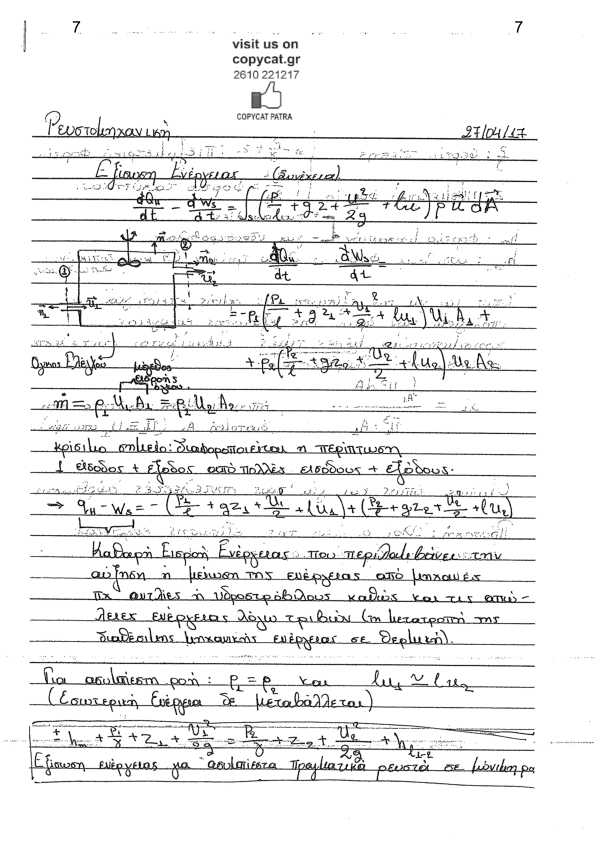 7 7
visit us on
copycat.gr
2610 221217
COPYCAT PATRA
Ρευστομηχανική 27/04/17
Εξίσωση Ενέργειας (συνέχεια)
dQ_H/dt - dW_s/dt = ∫(P/ρ + gz + u²/2g + lu) ρ u⃗ dA⃗
① ② n⃗ n⃗₂ u⃗₂ n⃗₁ u⃗₁
dQ_H/dt - dW_s/dt =
= -ρ₁(P₁/ρ + gz₁ + U₁²/2 + lu₁) U₁A₁ +
Όγκος Ελέγχου
+ ρ₂(P₂/ρ + gz₂ + U₂²/2 + lu₂) U₂A₂
μέγεθος
εισροής
όγκου
ṁ = ρ₁U₁A₁ = ρ₂U₂A₂
κρίσιμο σημείο: διαφοροποιείται η περίπτωση
1 είσοδος + έξοδος από πολλές εισόδους + εξόδους.
→ q_H - w_s = -(P₁/ρ + gz₁ + U₁/2 + lu₁) + (P₂/ρ + gz₂ + U₂/2 + lu₂)
Καθαρή Εισροή Ενέργειας που περιλαμβάνει την
αύξηση ή μείωση της ενέργειας από μηχανές
πχ αντλίες ή υδροστρόβιλους καθώς και τις απώ-
λειες ενέργειας λόγω τριβών (τη μετατροπή της
διαθέσιμης μηχανικής ενέργειας σε θερμική).
Για ασυμπίεστη ροή: ρ₁ = ρ₂ και lu₁ ≃ lu₂
(Εσωτερική Ενέργεια δε μεταβάλλεται)
± h_m + P₁/γ + z₁ + U₁²/2g = P₂/γ + z₂ + U₂²/2g + h_l₁₋₂
Εξίσωση ενέργειας για ασυμπίεστα πραγματικά ρευστά σε μόνιμη ρο